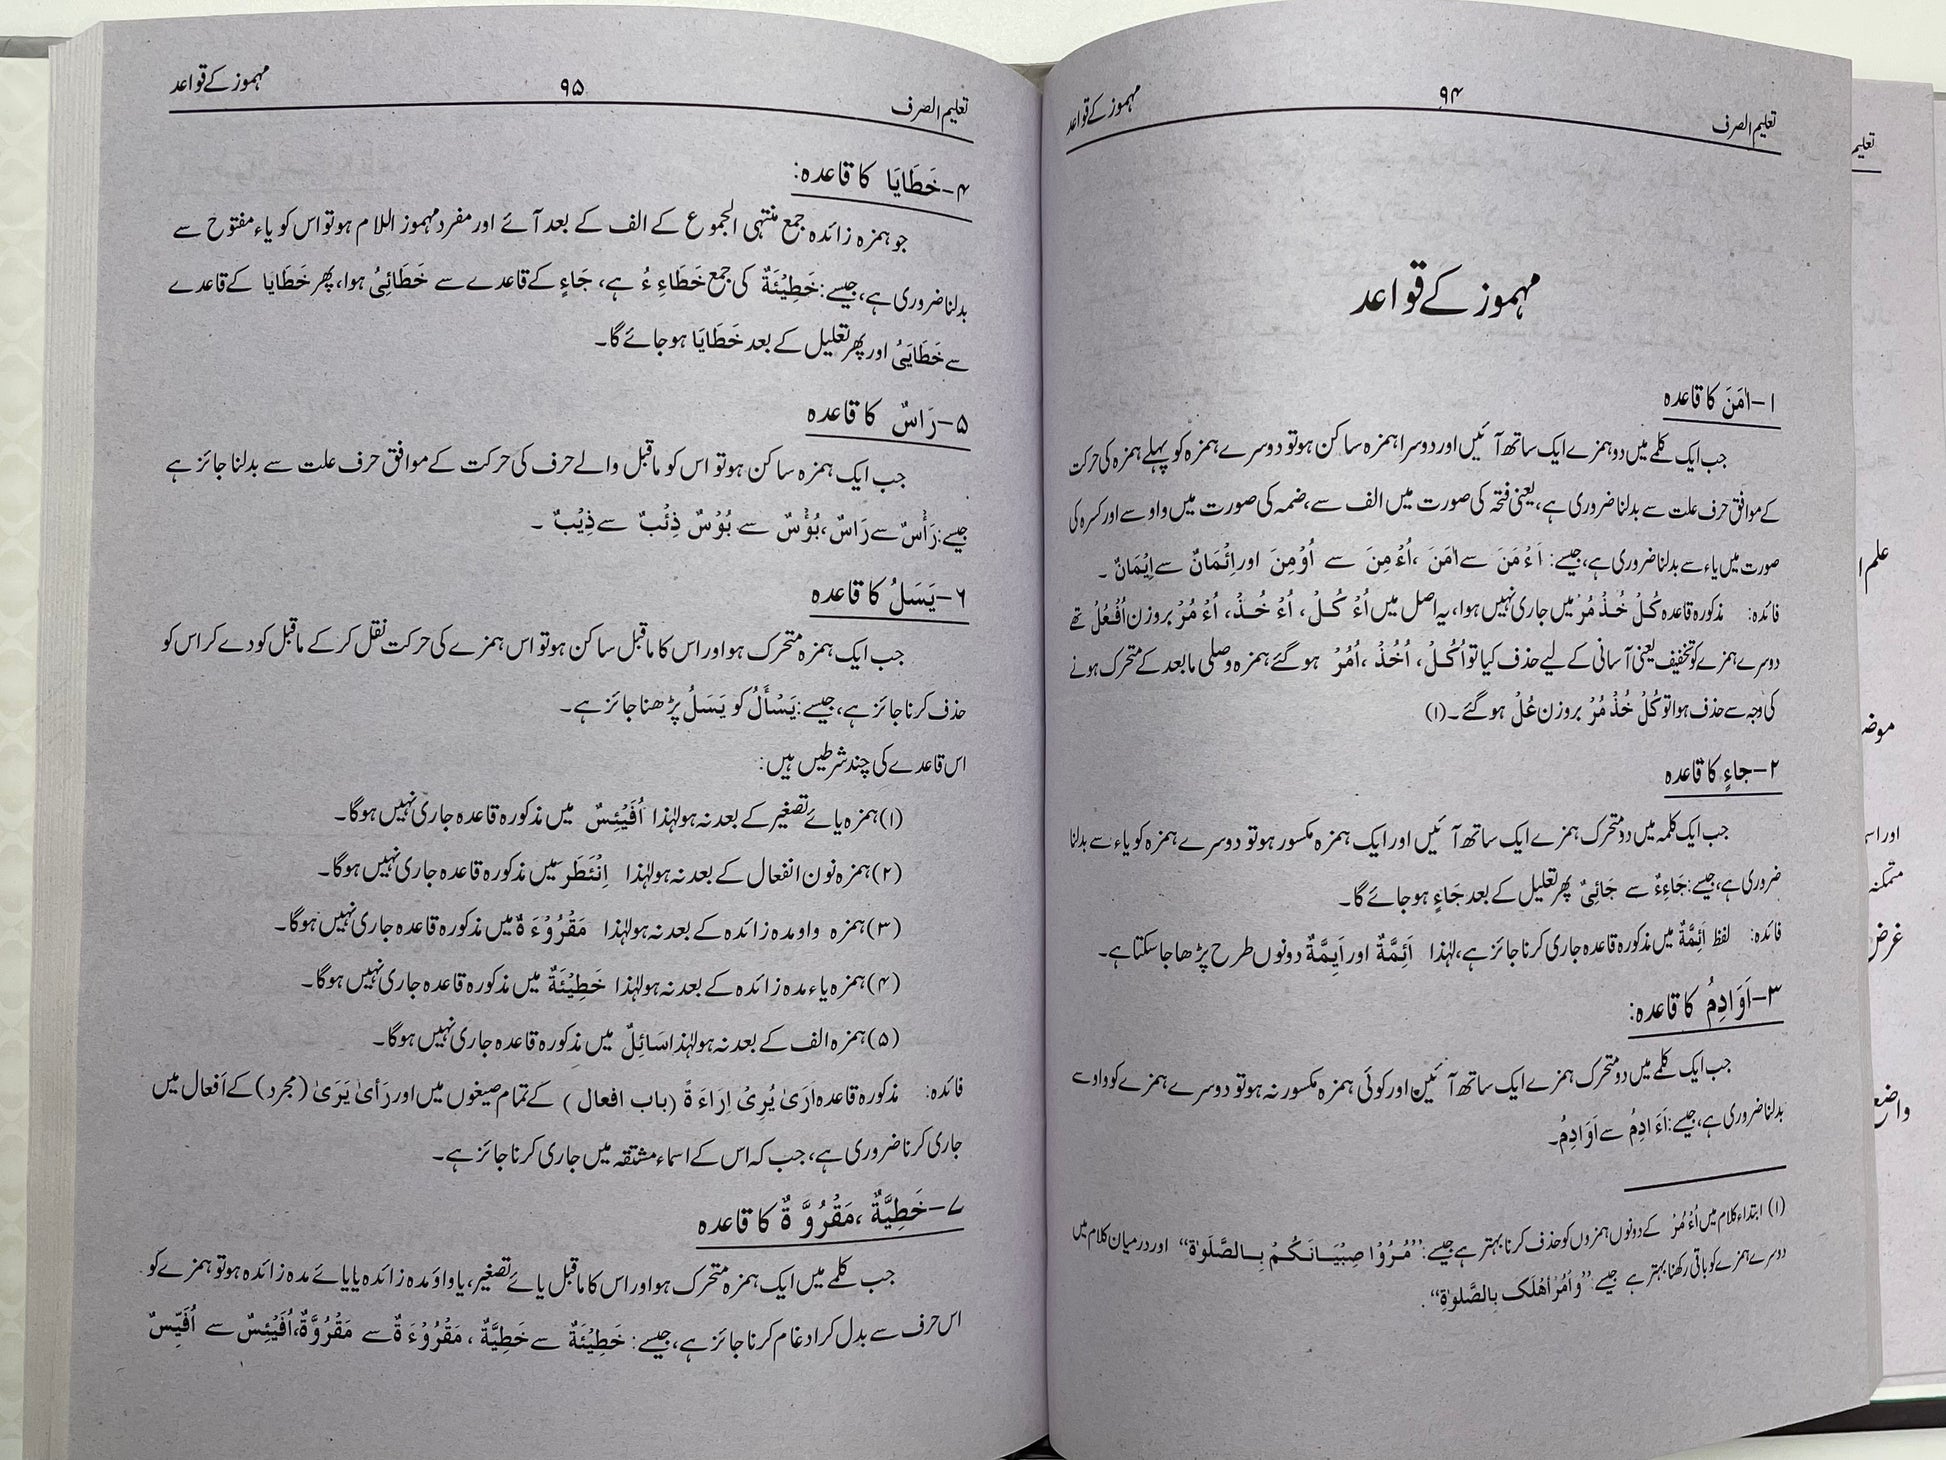 تعلیم الصرف ۹۴ مہموز کے قواعد
مہموز کے قواعد
۱-اٰمَنَ کا قاعدہ
جب ایک کلمے میں دو ہمزے ایک ساتھ آئیں اور دوسرا ہمزہ ساکن ہو تو دوسرے ہمزہ کو پہلے ہمزہ کی حرکت
کے موافق حرف علت سے بدلنا ضروری ہے، یعنی فتحہ کی صورت میں الف سے، ضمہ کی صورت میں واو سے اور کسرہ کی
صورت میں یاء سے بدلنا ضروری ہے، جیسے: اَءْمَنَ سے اٰمَنَ ،اُءْمِنَ سے اُوْمِنَ اور اِئْمَانٌ سے اِیْمَانٌ ۔
فائدہ: مذکورہ قاعدہ کُلْ خُذْ مُرْ میں جاری نہیں ہوا، یہ اصل میں اُءْ کُلْ ، اُءْ خُذْ، اُءْ مُرْ بروزن اُفْعُلْ تھے
دوسرے ہمزے کو تخفیف یعنی آسانی کے لیے حذف کیا تو اُکُلْ، اُخُذْ ،اُمُرْ ہو گئے ہمزہ وصلی مابعد کے متحرک ہونے
کی وجہ سے حذف ہوا تو کُلْ خُذْ مُرْ بروزن عُلْ ہو گئے ۔(۱)
۲-جاءٍ کا قاعدہ
جب ایک کلمہ میں دو متحرک ہمزے ایک ساتھ آئیں اور ایک ہمزہ مکسور ہو تو دوسرے ہمزہ کو یاء سے بدلنا
ضروری ہے، جیسے: جَاءِءٌ سے جَائِیٌ پھر تعلیل کے بعد جَاءٍ ہو جائے گا۔
فائدہ: لفظ اَئِمَّةٌ میں مذکورہ قاعدہ جاری کرنا جائز ہے، لہٰذا اَئِمَّةٌ اور اَیِمَّةٌ دونوں طرح پڑھا جا سکتا ہے۔
۳-اَوَادِمُ کا قاعدہ:
جب ایک کلمے میں دو متحرک ہمزے ایک ساتھ آئیں اور کوئی ہمزہ مکسور نہ ہو تو دوسرے ہمزے کو واو سے
بدلنا ضروری ہے، جیسے: اَءَادِمُ سے اَوَادِمُ۔
(۱) ابتداء کلام میں اُءْ مُرْ کے دونوں ہمزوں کو حذف کرنا بہتر ہے جیسے: ’’مُرُوْا صِبْیَانَکُمْ بِالصَّلَوٰةِ‘‘ اور درمیان کلام میں
دوسرے ہمزے کو باقی رکھنا بہتر ہے جیسے: ’’وأمُرْ أهْلَکَ بِالصَّلوٰةِ‘‘.
تعلیم الصرف ۹۵ مہموز کے قواعد
۴-خَطَایَا کا قاعدہ:
جو ہمزہ زائدہ جمع منتہی الجموع کے الف کے بعد آئے اور مفرد مہموز اللام ہو تو اس کو یاء مفتوح سے
بدلنا ضروری ہے، جیسے: خَطِیْئَةٌ کی جمع خَطَاءِ ءُ ہے، جَاءٍ کے قاعدے سے خَطَائِیُ ہوا، پھر خَطَایا کے قاعدے
سے خَطَایَیُ اور پھر تعلیل کے بعد خَطَایَا ہو جائے گا۔
۵-رَاسٌ کا قاعدہ
جب ایک ہمزہ ساکن ہو تو اس کو ماقبل والے حرف کی حرکت کے موافق حرف علت سے بدلنا جائز ہے
جیسے: رَأْسٌ سے رَاسٌ، بُؤْسٌ سے بُوْسٌ ذِئْبٌ سے ذِیْبٌ ۔
۶-یَسَلُ کا قاعدہ
جب ایک ہمزہ متحرک ہو اور اس کا ماقبل ساکن ہو تو اس ہمزے کی حرکت نقل کر کے ماقبل کو دے کر اس کو
حذف کرنا جائز ہے، جیسے: یَسْأَلُ کو یَسَلُ پڑھنا جائز ہے۔
اس قاعدے کی چند شرطیں ہیں:
(۱) ہمزہ یائے تصغیر کے بعد نہ ہو لہٰذا اُفَیْئِسٌ میں مذکورہ قاعدہ جاری نہیں ہو گا۔
(۲) ہمزہ نون انفعال کے بعد نہ ہو لہٰذا اِنْئَطَرَ میں مذکورہ قاعدہ جاری نہیں ہو گا۔
(۳) ہمزہ واو مدہ زائدہ کے بعد نہ ہو لہٰذا مَقْرُوْءَةٌ میں مذکورہ قاعدہ جاری نہیں ہو گا۔
(۴) ہمزہ یاء مدہ زائدہ کے بعد نہ ہو لہٰذا خَطِیْئَةٌ میں مذکورہ قاعدہ جاری نہیں ہو گا۔
(۵) ہمزہ الف کے بعد نہ ہو لہٰذا سَائِلٌ میں مذکورہ قاعدہ جاری نہیں ہو گا۔
فائدہ: مذکورہ قاعدہ اَرَیٰ یُرِیْ اِرَاءَةً (باب افعال) کے تمام صیغوں میں اور رَأیٰ یَرَیٰ (مجرد) کے اَفعال میں
جاری کرنا ضروری ہے، جب کہ اس کے اسماء مشتقہ میں جاری کرنا جائز ہے۔
۷-خَطِیَّةٌ ،مَقْرُوَّةٌ کا قاعدہ
جب کلمے میں ایک ہمزہ متحرک ہو اور اس کا ماقبل یائے تصغیر، یا واؤ مدہ زائدہ یا یائے مدہ زائدہ ہو تو ہمزے کو
اس حرف سے بدل کر ادغام کرنا جائز ہے، جیسے: خَطِیْئَةٌ سے خَطِیَّةٌ ، مَقْرُوْءَةٌ سے مَقْرُوَّةٌ، اُفَیْئِسٌ سے اُفَیِّسٌ
تعلیم
علم ا
موضو
اور اسم
متمکنہ
غرض
واضع